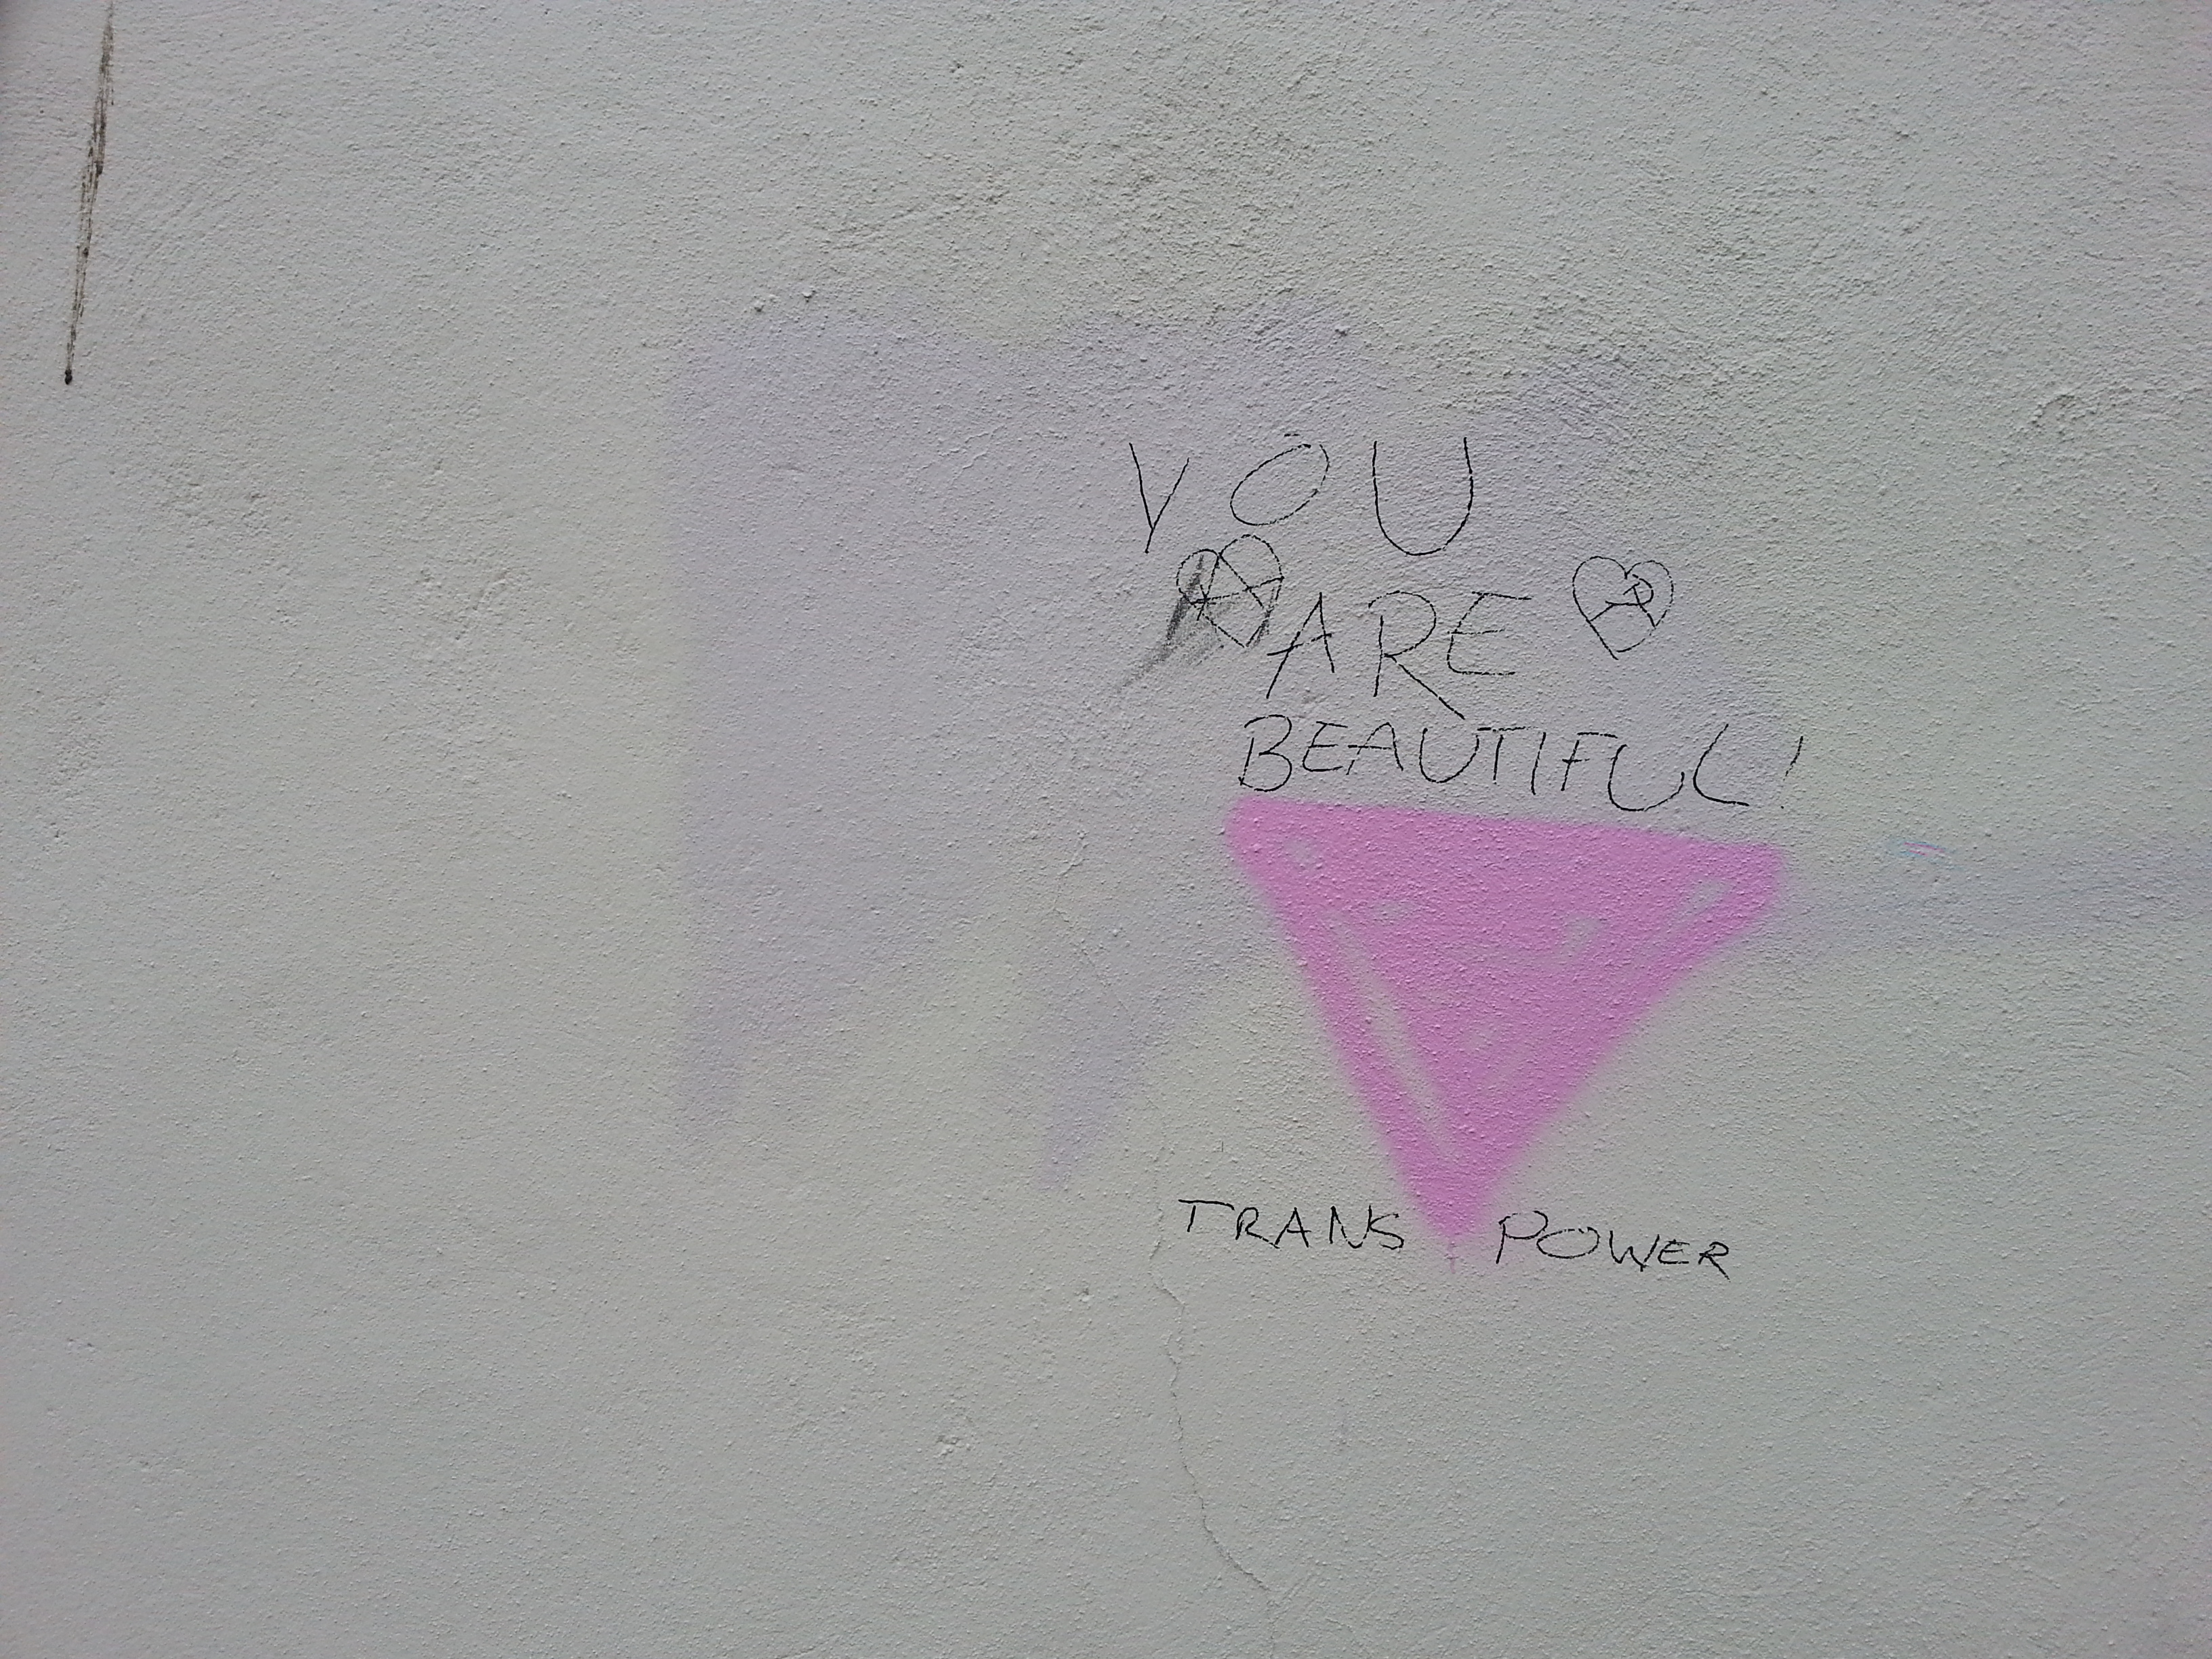 YOU
ARE
BEAUTIFUL!
TRANS POWER